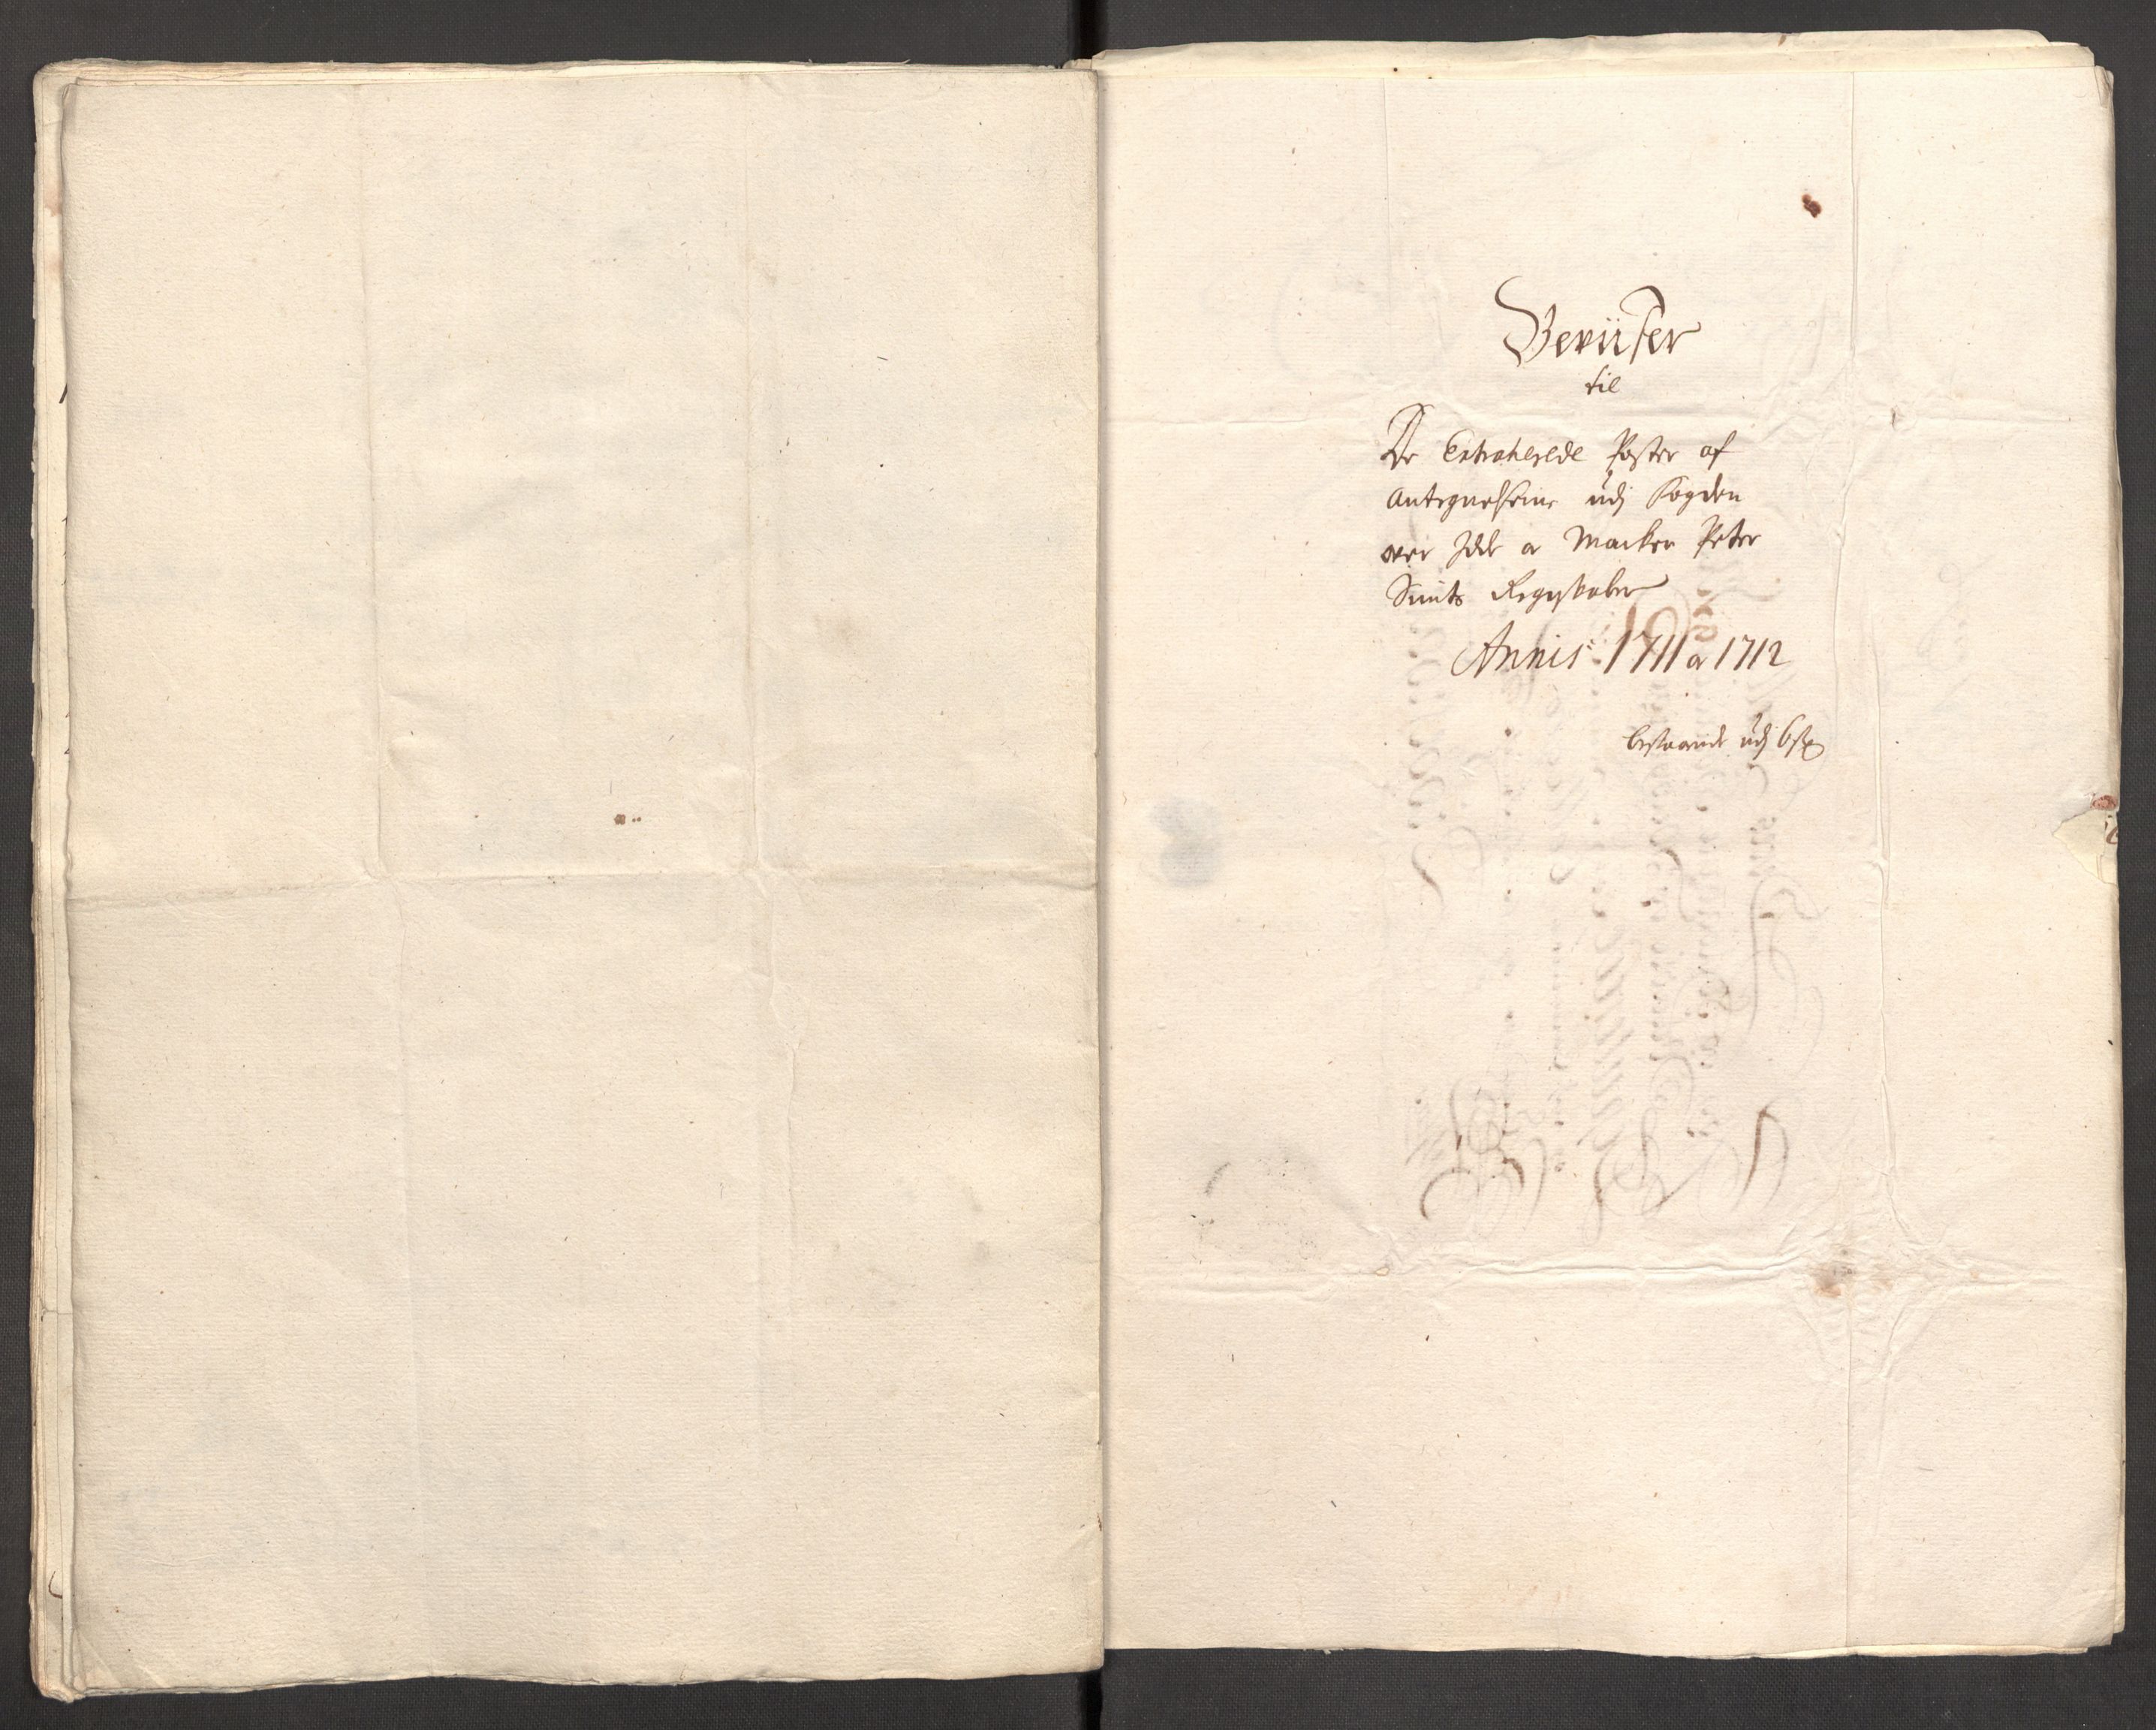 Beviiser
til
De Extraherede Poster af
Antegnelserne udj fogden
over Idde a Marker Peter
Smits Regnskaber
Annis 1711 a 1712
bestaaende udj